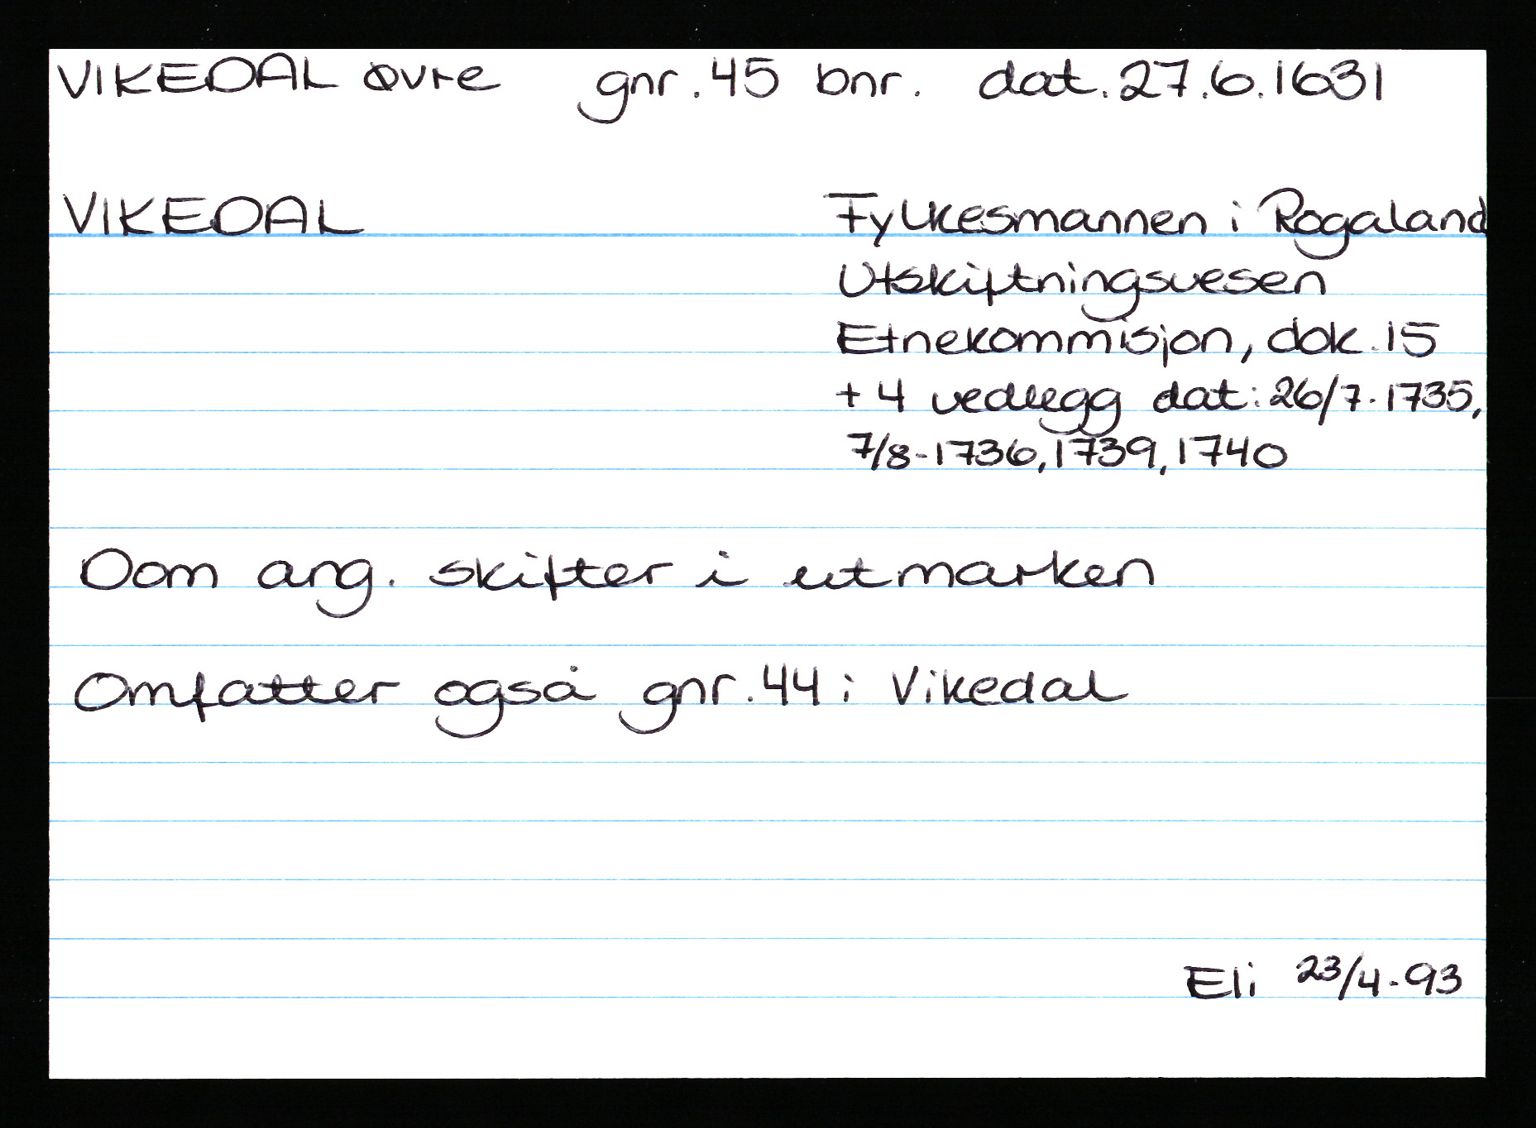 VIKEDAL øvre gnr. 45 bnr. dat. 27.6.1631
VIKEDAL
Fylkesmannen i Rogaland
Utskiftningsvesen
Etnekommisjon, dok. 15
+ 4 vedlegg dat: 26/7-1735,
7/8-1736, 1739, 1740
Dom ang. skifter i utmarken
Omfatter også gnr. 44 i Vikedal
Eli 23/4-93